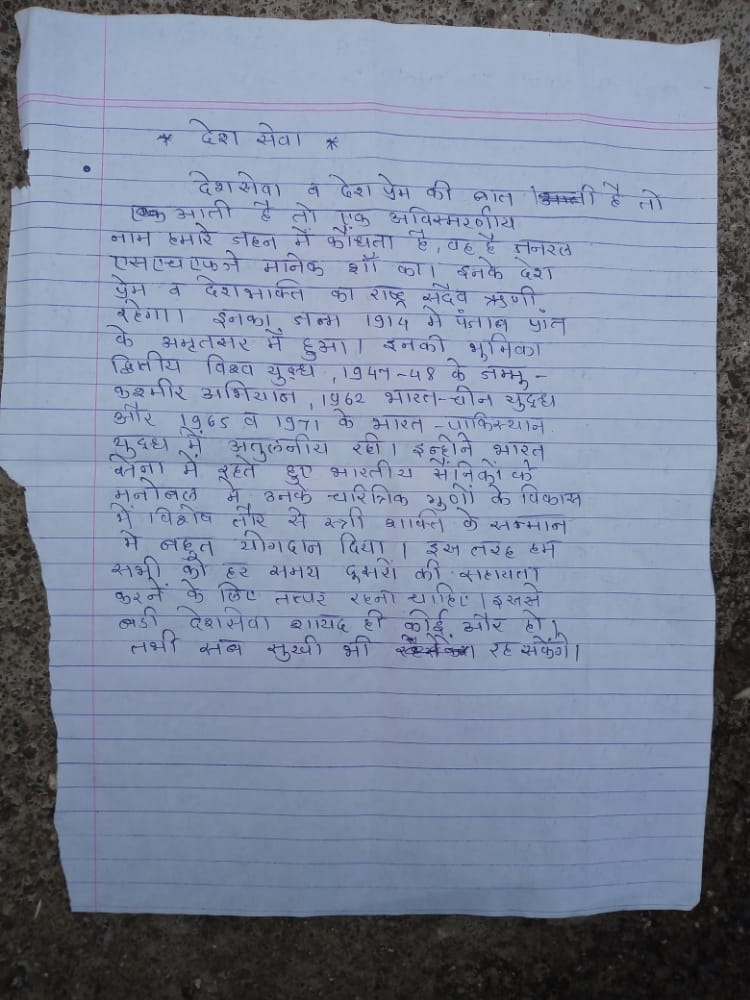 * देश सेवा *
देशसेवा व देश प्रेम की बात आती है तो
एक आती है तो एक अविस्मरणीय
नाम हमारे जहन में कौंधता है, वह है जनरल
एसएचएफजे मानेक शॉ का। इनके देश
प्रेम व देशभक्ति का राष्ट्र सदैव ऋणी
रहेगा। इनका जन्म 1914 मे पंजाब प्रांत
के अमृतसर में हुआ। इनकी भुमिका
द्वितीय विश्व युध्ध, 1947-48 के जम्मू-
कश्मीर अभियान, 1962 भारत-चीन युद्ध
और 1965 व 1971 के भारत-पाकिस्थान
युद्ध में अतुलनीय रही। इन्होने भारत
सेना में रहते हुए भारतीय सैनिकों के
मनोबल मे, उनके चरित्रिक गुणों के विकास
में विशेष तौर से स्त्री शक्ति के सम्मान
मे बहुत योगदान दिया। इस तरह हम
सभी को हर समय दुसरों की सहायता
करनें के लिए तत्पर रहना चाहिए। इससे
बडी देशसेवा शायद ही कोई और हो।
तभी सब सुखी भी रह सकेंगे।